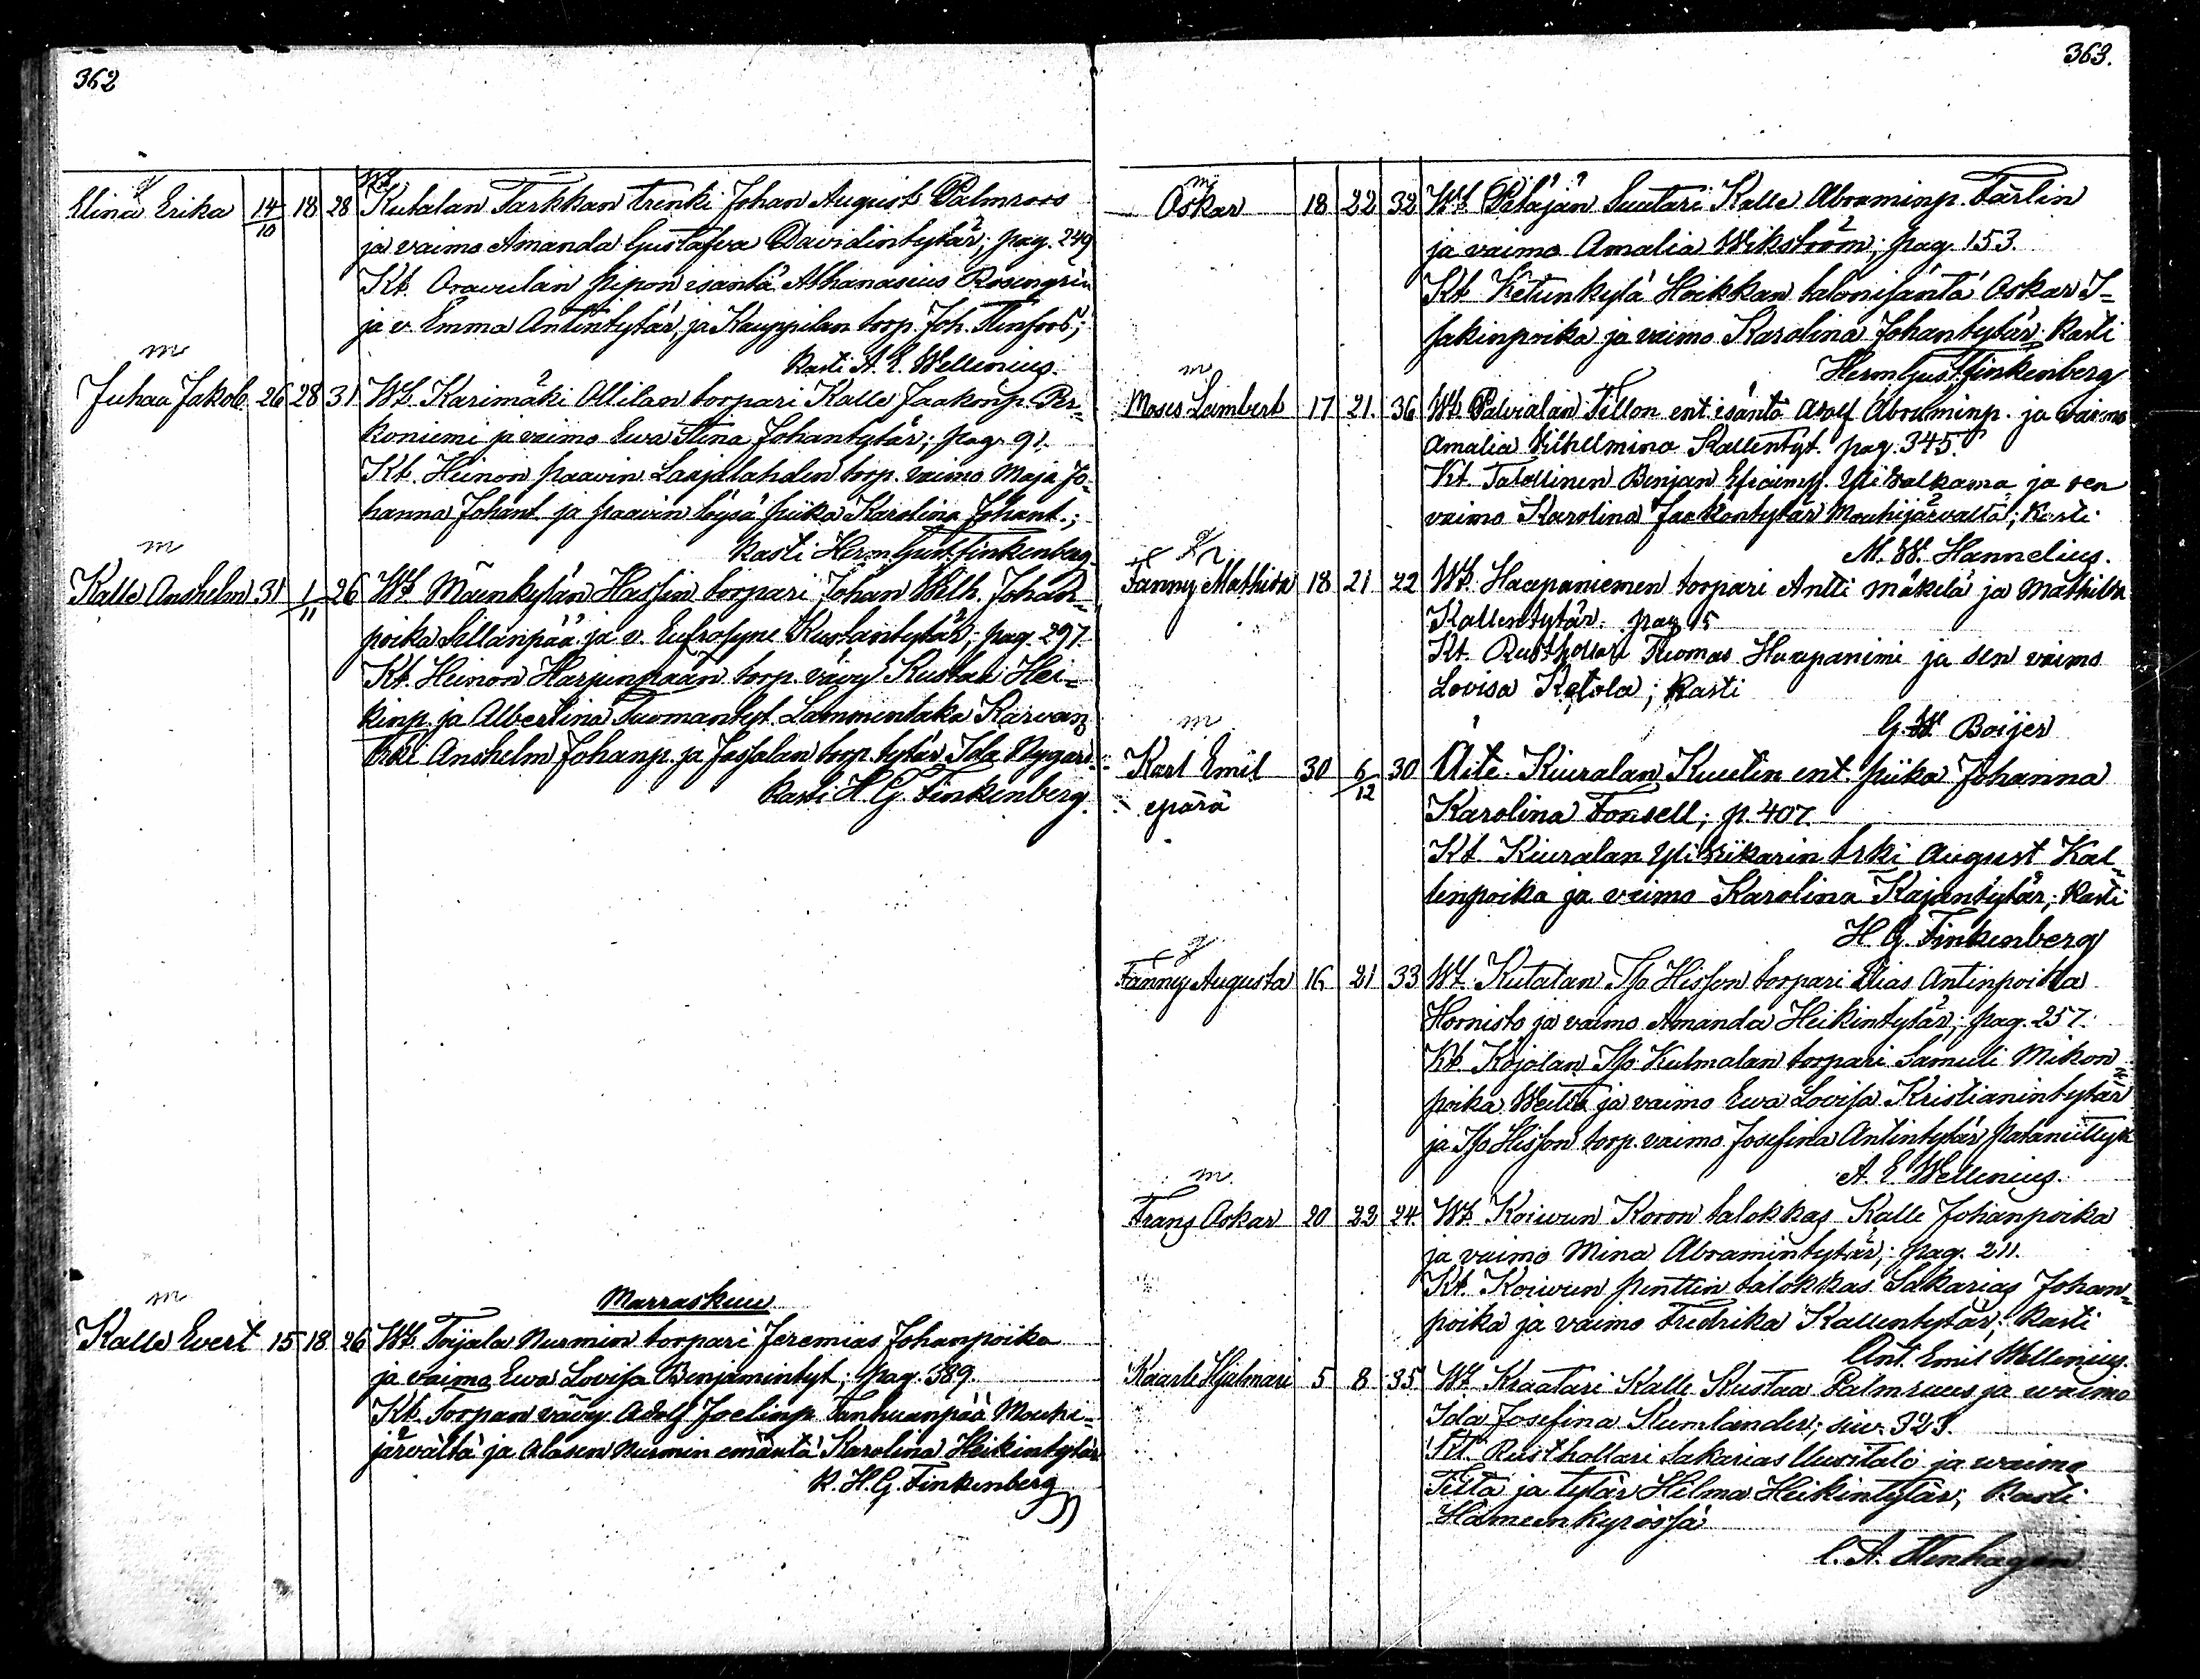 362
Elina Erika 14/10 18 28 Wt. Kutalan Tarkkan trenki Johan August Palmroos
ja vaimo Amanda Gustafva Davidintytär; pag. 249
Kt. Oravulan Pipon isäntä Athanasius Rosengrin
ja v. Emma Antintytär, ja Kauppilan torp. Joh. Stenfors;
Kasti A. E. Wellenius.
m
Juhaa Jakob. 26 28 31 Wt. Karimäki Ollilan torpari Kalle Jaakonp. Per-
koniemi ja vaimo Ewa Stina Johantytär; pag. 91.
Kt. Heinon Paavin Laajalahden torp. vaimo Maja Jo-
hanna Johant. ja Paavin löysä piika Karolina Johant.;
Kasti Herm. Gust. Finkenberg.
m
Kalle Anshelm 31 1/11 26 Wt. Mäenkylän Hassin torpari Johan Wilh. Johan-
poika Sillanpää ja v. Eufrosyne Kustantytär; pag. 297.
Kt. Heinon Harjunpään torp. vävy Kustaa Hei-
kinp. ja Albertina Tuomantyt. Lammentaka Karvan
trki Anshelm Johanp. ja Jaffalan torp. tytär Ida Nygard.
Kasti H. G. Finkenberg.
Marraskuu
m
Kalle Evert 15 18 26 Wt. Toijala Nurmin torpari Jeremias Johanpoika
ja vaimo Ewa Lovisa Benjamintyt; pag. 389.
Kt. Torpan vävy Adolf Joelinp. Tanhuanpää Mouhi-
järvältä ja Alasen Nurmin emäntä Karolina Heikintytär
K. H. G. Finkenberg
363.
m
Oskar 18 22 32 Wt. Petäjän Suutari Kalle Abraminp. Färlin
ja vaimo Amalia Wikström; pag. 153.
Kt Ketunkylä Heikkan talonisäntä Oskar I-
sakinpoika ja vaimo Karolina Johantytär; Kasti
Herm. Gust. Finkenberg
m
Moses Lambert 17 21. 36 Wt. Palvialan Tillon ent. isäntä Adolf Abraminp. ja vaimo
Amalia Vilhelmina Kallentyt. pag. 345.
Kt Talollinen Benjan Efraimp. Yli ja sen
vaimo Karolina Jaakontytär Mouhijärvältä; Kasti
M. W. Hannelius.
Fanny Mathilda 18 21 22 Wt. Haapaniemen torpari Antti Mäkelä ja Mathilda
Kallentytär. pag 15
Kt. Rusthollari Tuomas Haapanimi ja sen vaimo
Lovisa Ketola; Kasti
G. W. Boijer
m
Karl Emil 30 6/12 30 Äite. Kiuralan Kuutin ent. piika Johanna
epärä Karolina Fonsell; p. 407.
Kt Kiuralan Yli trki August Kal-
lenpoika ja vaimo Karolina Kajantytär; Kasti
H. G. Finkenberg
Fanny Augusta 16 21 33 Wt. Kutalan Iso Hisson torpari Elias Antinpoika
Hornisto ja vaimo Amanda Heikintytär; pag. 257.
Kt. Kojolan Iso Kulmalan torpari Samuli Mikon-
poika ja vaimo Ewa Lovisa Kristianintytär
ja Iso Hisson torp. vaimo Josefina Antintytär
A. E. Wellenius.
m
Frans Oskar 20 23 24 Wt. Koivun Koron talokkas Kalle Johanpoika
ja vaimo Mina Abramintytär; pag. 211.
Kt. Koivun Penttin talokkas Sakarias Johan-
poika ja vaimo Fredrika Kallentytär; Kasti
Ant. Emil Wellenius.
Kaarle Hjalmari 5 8 35 Wt. Kraatari Kalle Kustaa Palmruus ja waimo
Ida Josefina Stumlander; siv. 323.
Kt. Rusthollari Sakarias Uusitalo ja waimo
ja tytär Hilma Heikintytär; Kasti
Hämeenkyrössä
C. A. Stenhagen